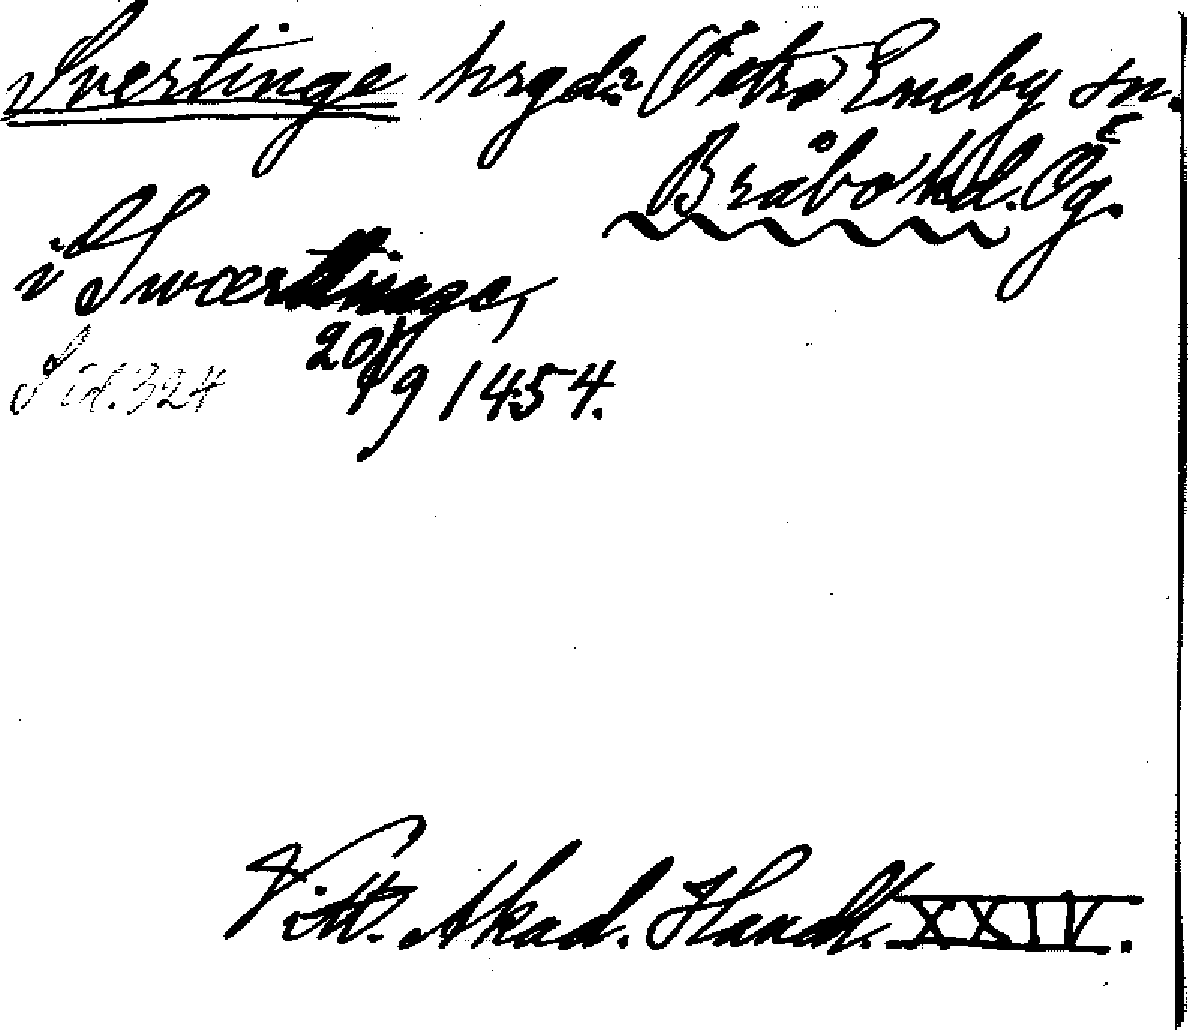 Svertinge hrgd? Östra Eneby sn.
Bråbo hd. Ög.
i Swærtinge,
Sid. 324 20/9 1454.
Vitt. Akad. Handl. XXIV.